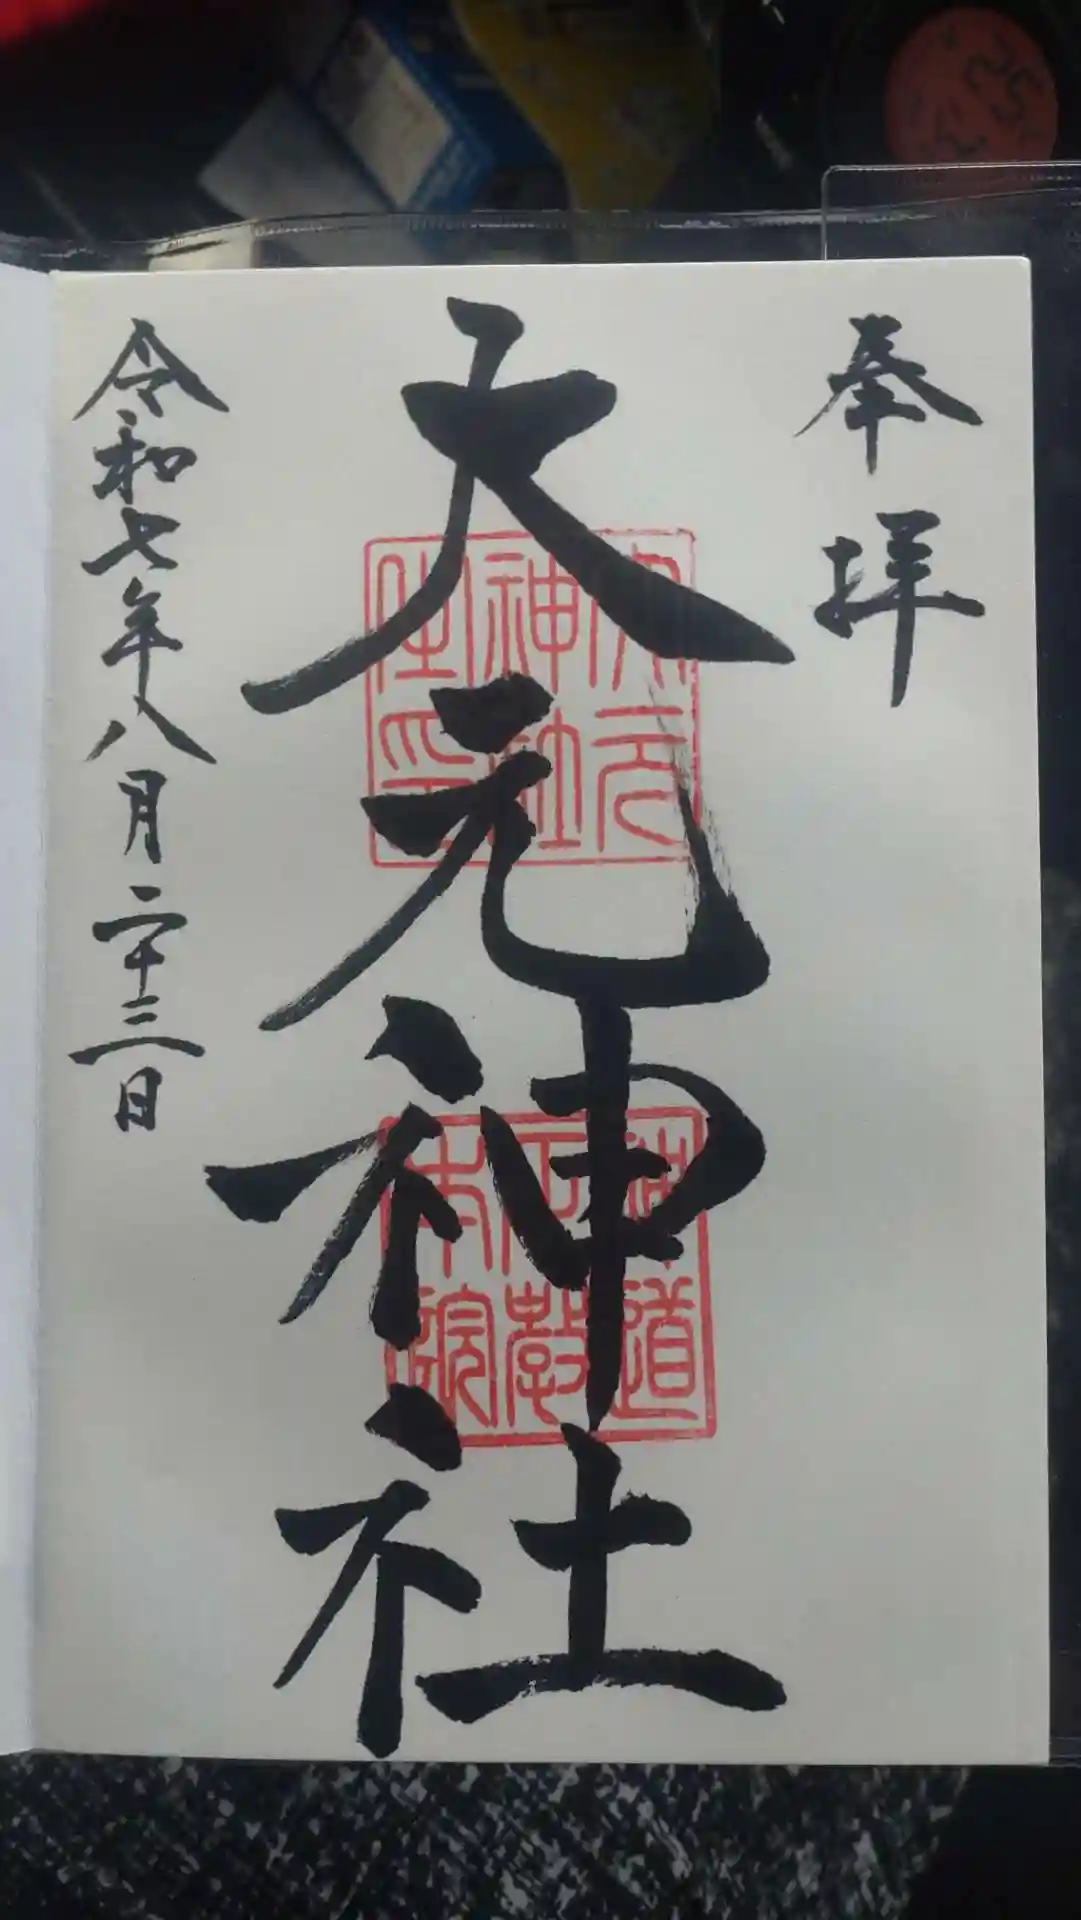 奉拝
大元神社
大元
神社
之印
神道
教
本院
令和七年八月二十三日